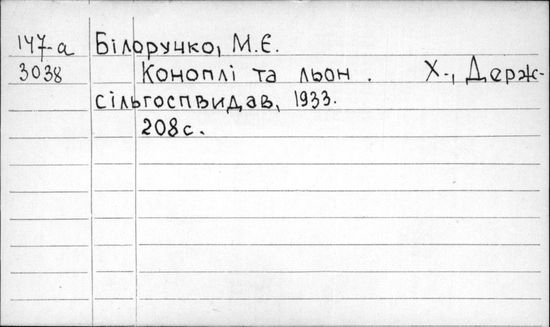 147-а Білоручко, М.Є.
3038 Коноплі та льон. Х., Держ-
сільгоспвидав, 1933.
208с.